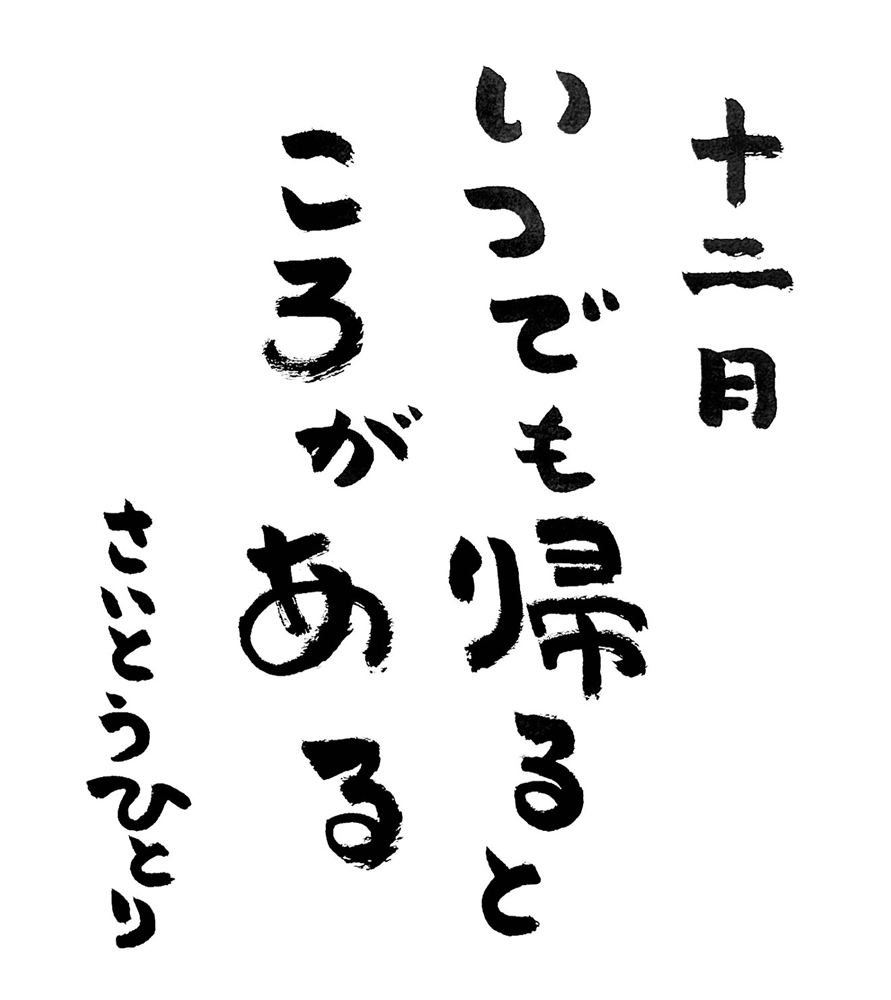 十二月
いつでも帰ると
ころがある
さいとうひとり